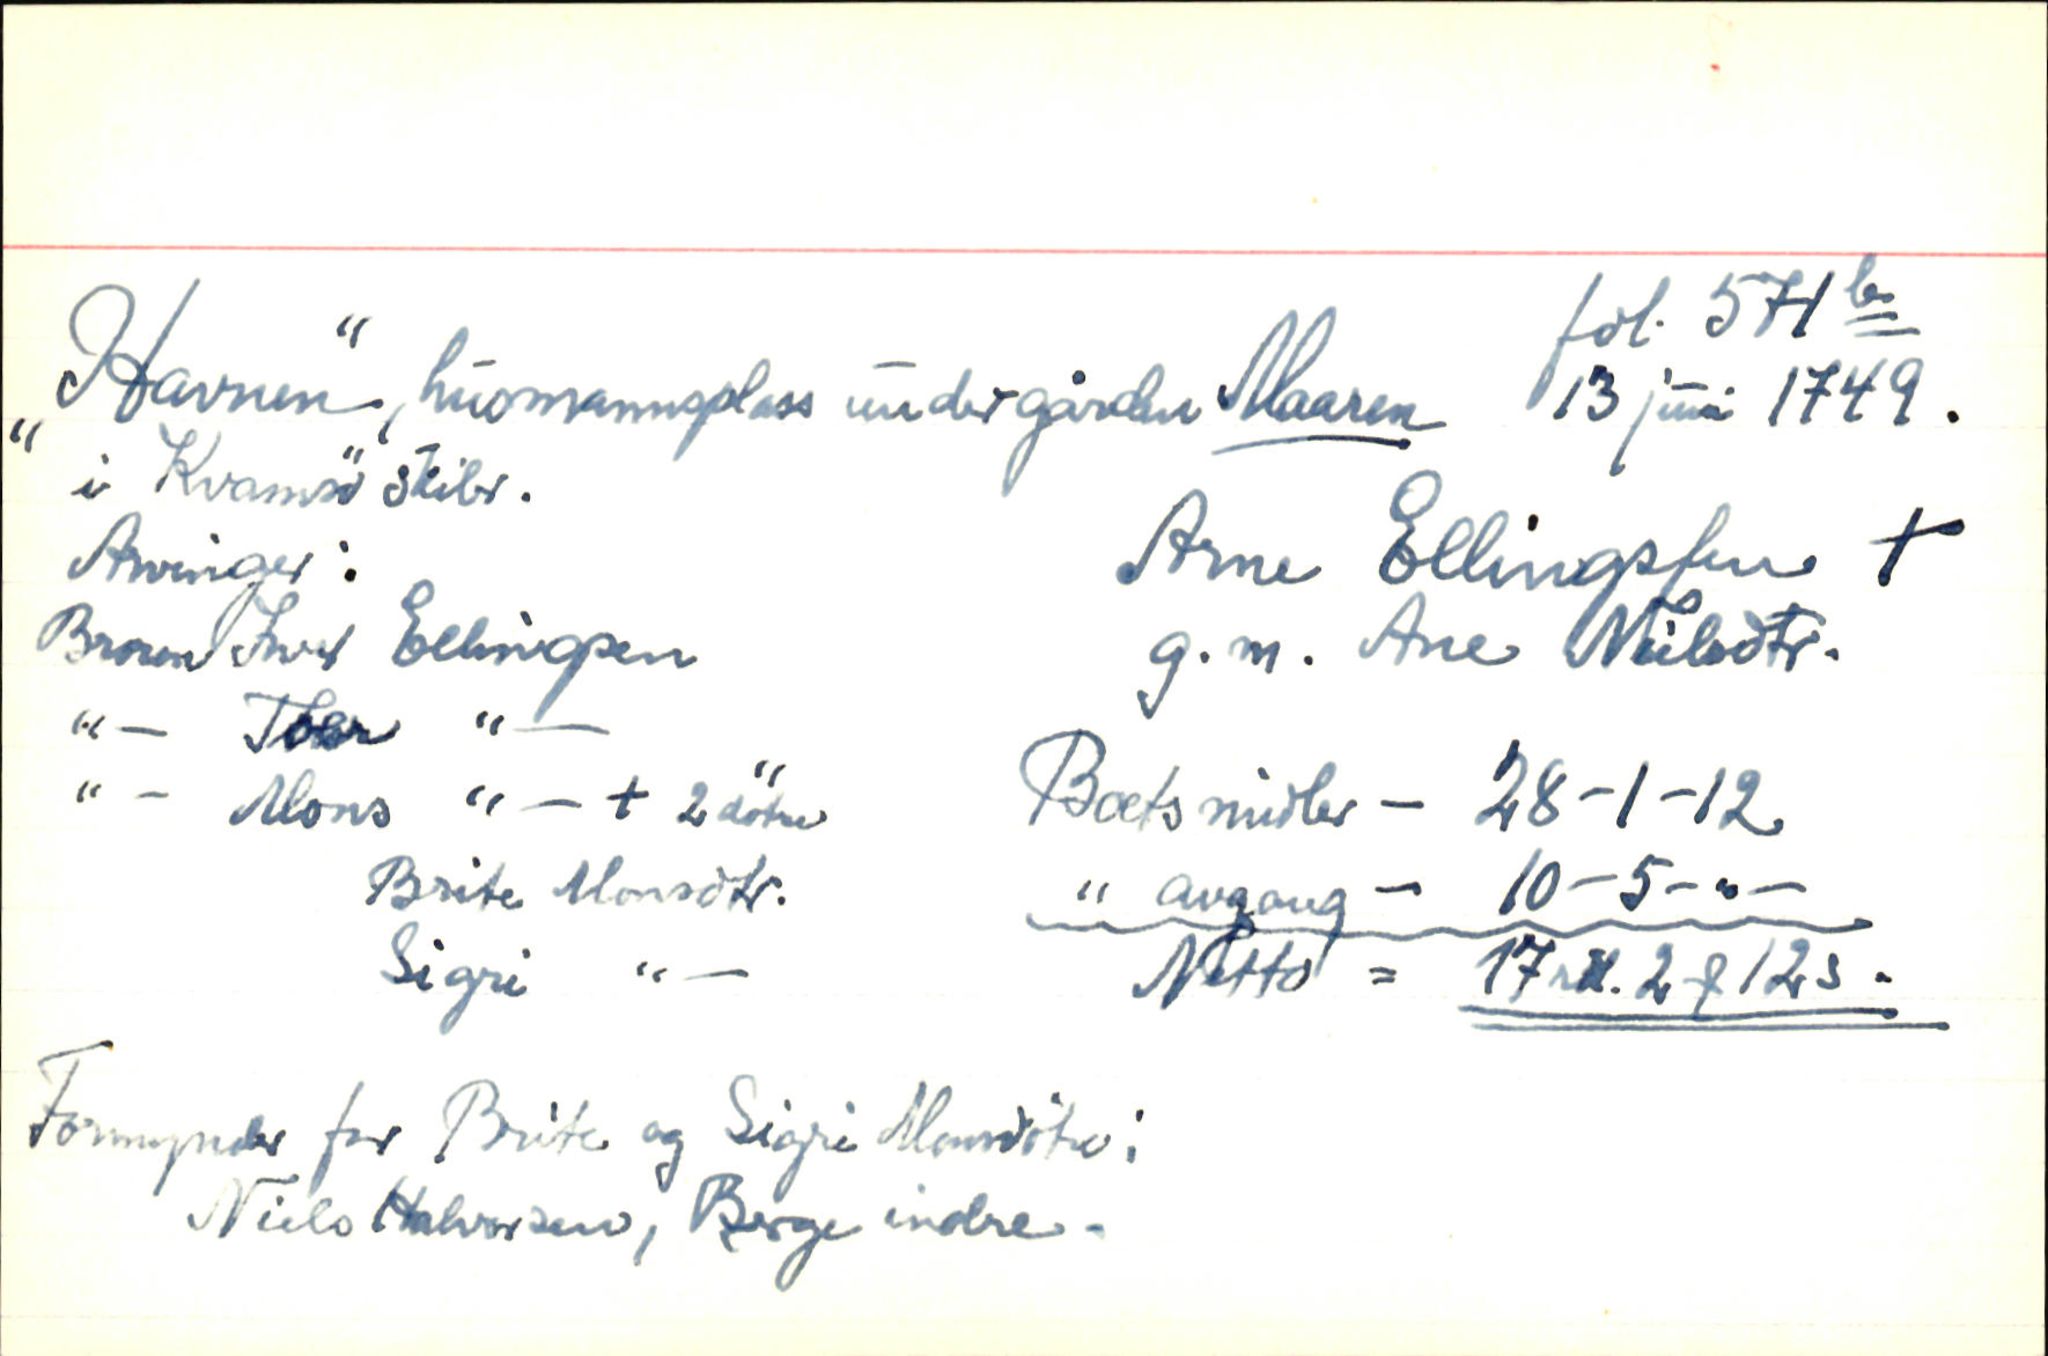 fol. 571 b
"Havnen", húsmannsplass under gården Maaren 13 júni 1749.
i Kvamsö skibr.
Arvinger:
Arne Ellingsen †
Broren Iver Ellingsen
g. m. Ane Neilsdtr.
"— "—
"— Mons "— † 2 döttre
Boets midler — 28-1-12
Brite Monsdtr.
" avgang — 10-5-"-
Sigri "—
Netto = 17 rd. 2 ƒ 12 s.
Formynder for Brite og Sigri Monsdötre:
Niels Halvorsen, Berge indre.